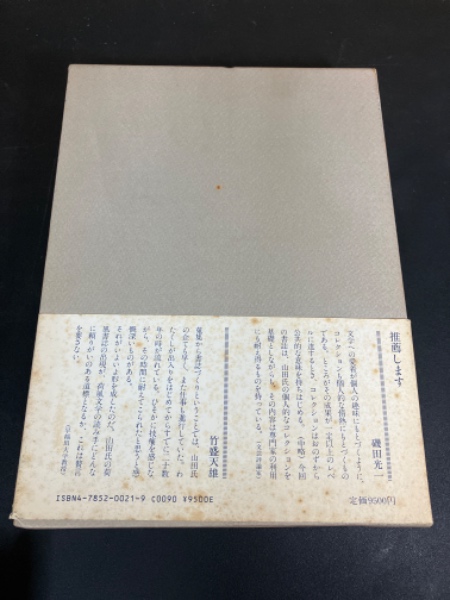 推薦します
磯田光一
文学への愛着が個人の趣味にもとづくように、
コレクションも個人的な情熱にもとづくもの
である。ところがその成果が一定以上のレベ
ルに達するとき、コレクションはおのずから
公共的な意味を持ちはじめる。(中略)今回
の書誌は、山田氏の個人的なコレクションを
基礎としながら、その内容は専門家の利用
にも耐え得るものを持っている。
(文芸評論家)
竹盛天雄
蒐集から書誌づくりということでは、山田氏
の会でも早く、また仕事も進行していた。わ
たくしが出入りをはじめてからすでに二十数
年の時が流れている。ひそかに技癢を感じな
がら、その時間に耐えてこられたと思うと感
慨深いものがある。
それがいよいよ形を成したのだ。山田氏の荷
風書誌の出現が、荷風文学の読み手にどんな
に頼りがいのある道標となるか、これは贅言
を要さない。
(早稲田大学教授)
ISBN4-7852-0021-9 C0090 ¥9500E
定価9500円